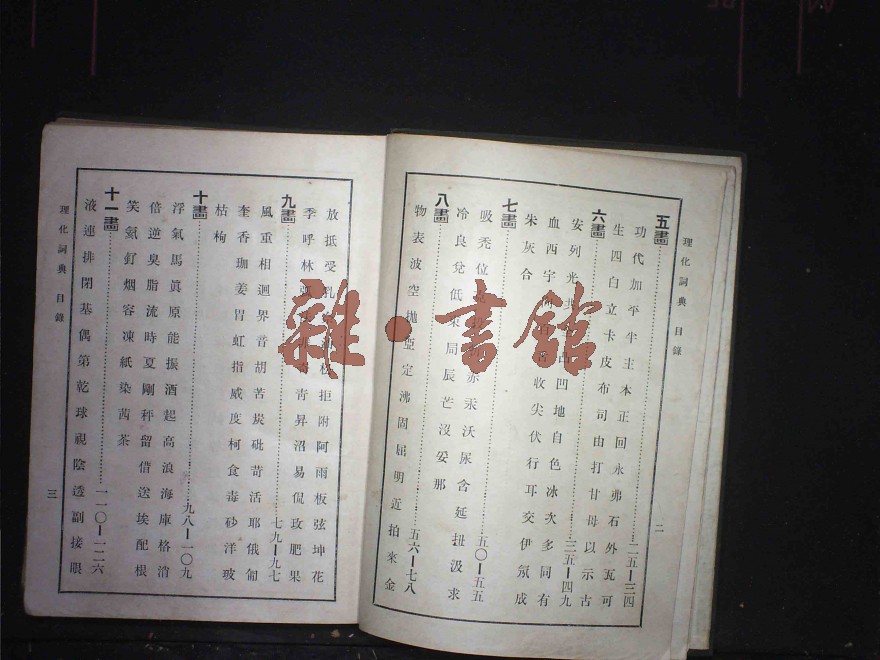 理化詞典 目錄
二
五畫 二五—三四
功代加平半主本正回永弗石外瓦可
生四白立卡皮布司由打甘母以示古
六畫 三五—四九
安列光共 凸凹地自色冰次多同有
血西宇 收尖伏行耳交伊氖成
朱灰合
七畫 五〇—五五
吸禿位 赤汞沃尿含延扭汲求
冷良兌低 局辰芒沒妥那
八畫 五六—七八
物表波空拋亞定沸固屈明近拍來金
放抵受乳 拒附阿雨板弦坤花
季呼林弧 青昇沼易侃玫肥果
九畫 七九—九七
風重相迴界音胡苦炭砒苛活耶俄
奎香珈姜胃虹指威度柯食毒砂洋玻
枯枸
十畫 九八—一〇九
浮氣馬眞原能振酒起高浪海庫格消
倍逆臭脂流時夏剛秤留借送埃配根
笑氦釘烟容凍紙染茜茶
十一畫 一一〇—一二六
液連排閉基偶第乾球視陰透副接眼
理化詞典 目錄
三
雜·書館